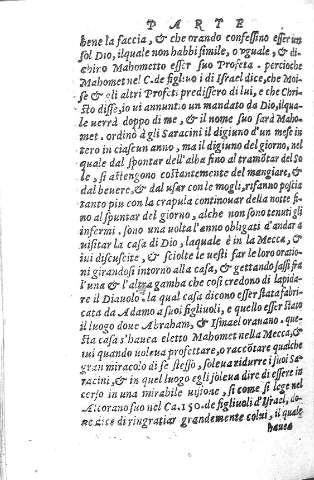 PARTE
bene la faccia, & che orando confessino esser un
sol Dio, ilquale non habbi simile, o uguale, & di-
chino Mahometto esser suo Profeta. percioche
Mahomet nel C. de figliuoli di Israel dice, che Moi-
se & gli altri Profeti predissero di lui, e che Chri-
sto disse, io ui annuntio un mandato da Dio, ilqua-
le uerrà doppo di me, & il nome suo sarà Maho-
met. ordinò a gli Saracini il digiuno d'un mese in-
tero in ciascun anno, ma il digiuno del giorno, nel
quale dal spontar dell'alba fino al tramõtar del So-
le, si astengono costantemente del mangiare, &
dal beuere, & dal usar con le mogli, rifanno poscia
tanto piu con la crapula continouar della notte fi-
no al spuntar del giorno, alche non sono tenuti gli
infermi. sono una uolta l'anno obligati d'andar a
uisitar la casa di Dio, laquale è in la Mecca, &
iui discuscite, & sciolte le uesti far le loro oratio-
ni girandosi intorno alla casa, & gettando sassi fra
l'una & l'altra gamba che cosi credono di lapida-
re il Diauolo. la qual casa dicono esser stata fabri-
cata da Adamo a suoi figliuoli, e quello esser stato
il luogo doue Abraham, & Ismael orauano. que-
sta casa s'hauea eletto Mahomet nella Mecca, &
iui quando uoleua profettare, o raccõtare qualche
gran miracolo di se stesso, soleua ridurre i suoi Sa-
racini, & in quel luogo egli soleua dire di essere in-
corso in una mirabile uisione, si come si lege nel
Alcorano suo nel Ca. 150. de figliuoli d'Israel, do-
ue dice di ringratiar grandemente colui, il quale
hauea